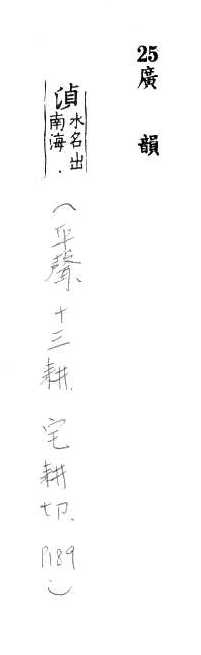 25廣韻
湞水名出南海.
(平聲、十三耕、宅耕切、P189)